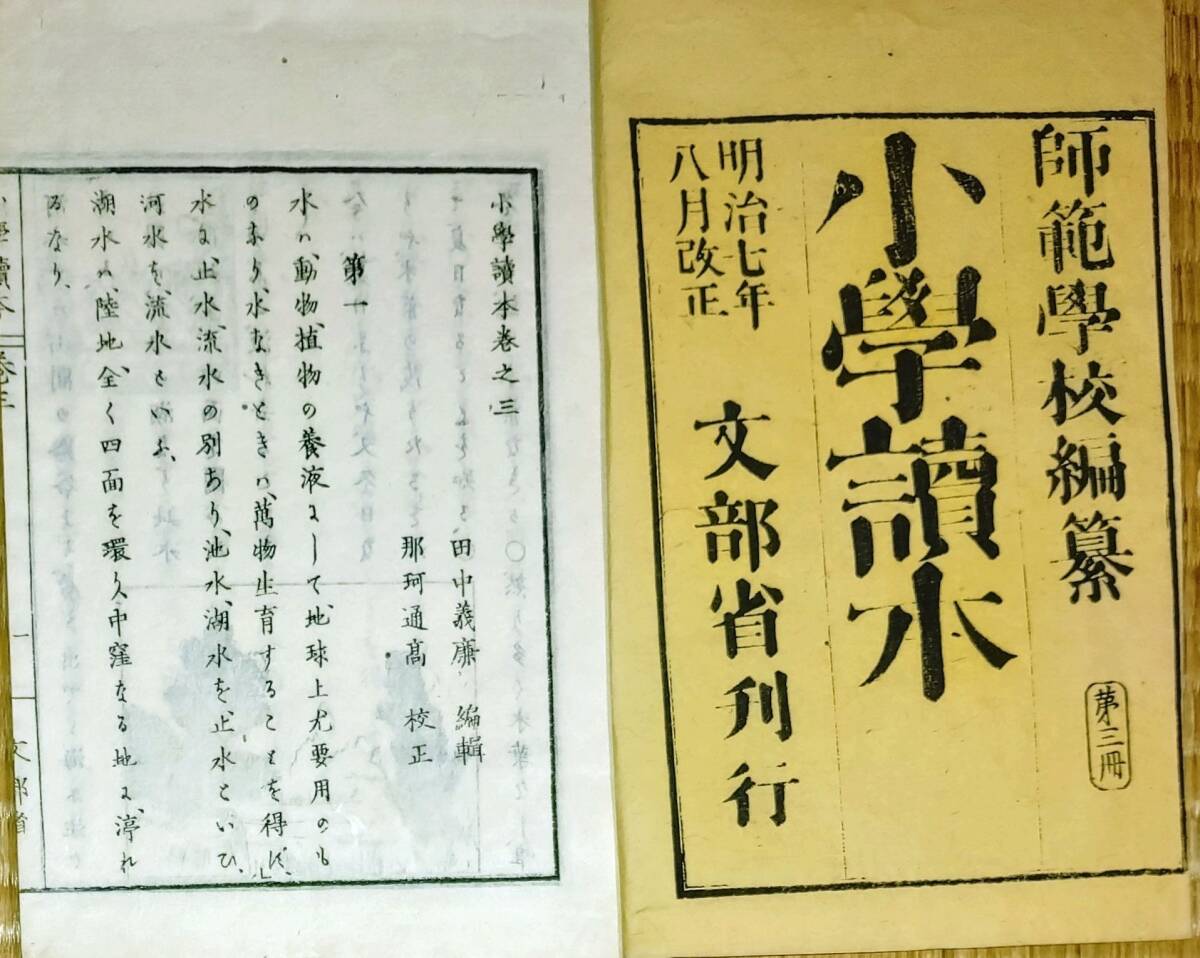 師範學校編纂
小學讀本
第三冊
明治七年
八月改正
文部省刊行
小學讀本卷之三
田中義廉 編輯
那珂通髙 校正
第一
水ハ、動物、植物の養液にして、地球上尤要用のも
のなり、水なきときハ、萬物生育することを得ず、」
水に、止水、流水の別あり、池水、湖水を、止水といひ、
河水を、流水といふ、
湖水ハ、陸地、全く四面を環り、中窪なる地に、渟れ
るなり、
小學讀本 卷三
一
文部省